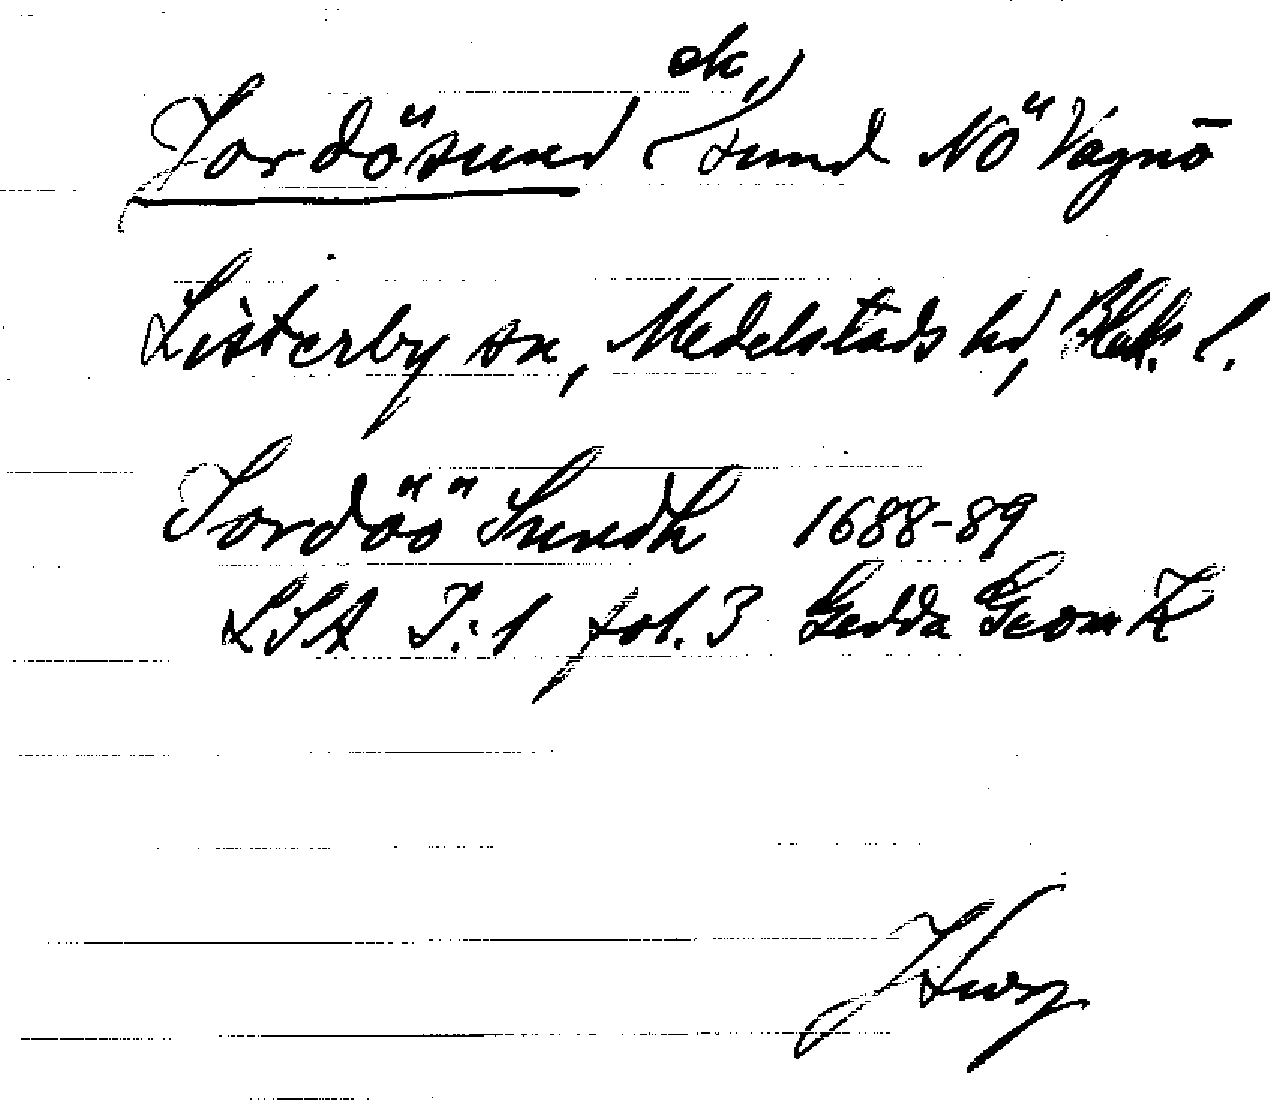 Jordösund (ok, sund NÖ Vagnö)
Listerby sn, Medelstads hd, Blek. l.
Jordöö Sundh 1688-89
LSA I:1 fol. 3 Gedda Geom K